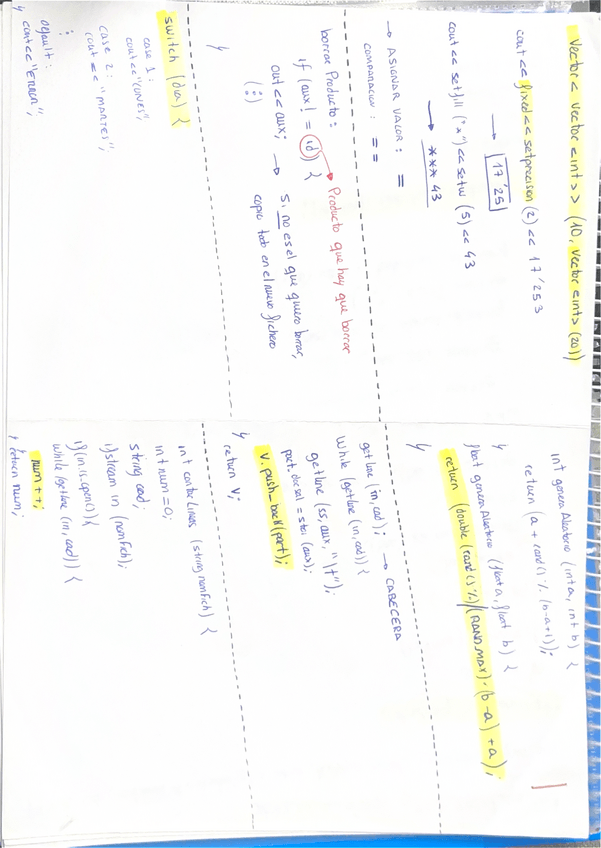 Vector < vector <int>> (10, vector <int> (20))
cout << fixed << setprecision (2) << 17'253
→ 17'25
cout << setfill ("*") << setw (5) << 43
→ *** 43
→ ASIGNAR VALOR : =
COMPARACIÓN : ==
borrar Producto :
if (aux != id) {
Producto que hay que borrar
out << aux; → si no es el que quiero borrar,
copio todo en el nuevo fichero
}
switch (dia) {
case 1:
cout << "LUNES";
case 2:
cout << "MARTES";
:
default:
cout << "ERROR";
}
int genera Aleatorio (int a, int b) {
return (a + rand() % (b-a+1));
}
float genera Aleatorio (float a, float b) {
return (double (rand() %)/(RAND_MAX) · (b-a) + a);
}
getline (in, cad); → CABECERA
While (getline (in, cad)) {
getline (ss, aux, "\t");
part. diesel = stoi (aux);
v. push_back (part);
}
return v;
int contar Lineas (string nomFich) {
int num = 0;
string cad;
ifstream in (nomFich);
if (in.is_open()) {
while (getline (in, cad)) {
num ++;
} return num;